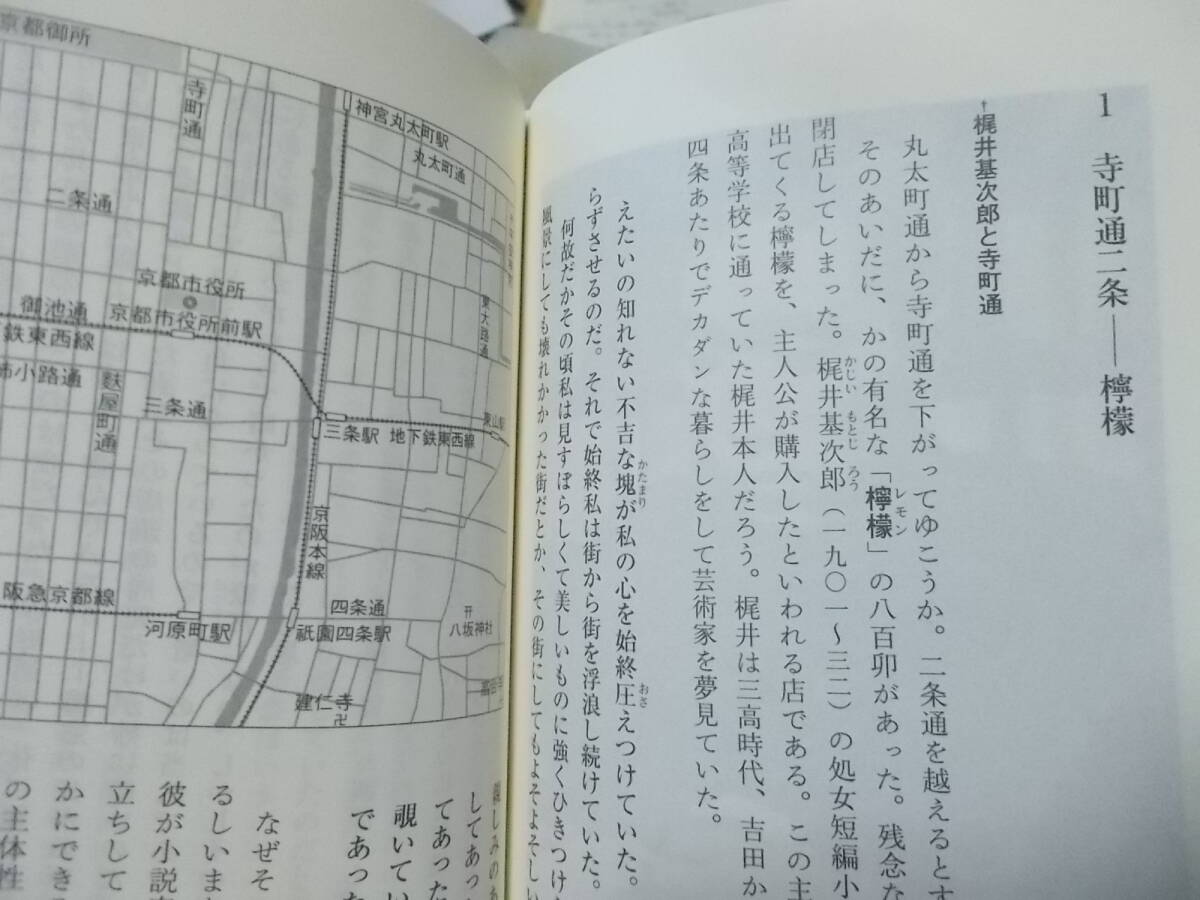 1　寺町通二条――檸檬
↑梶井基次郎と寺町通
丸太町通から寺町通を下がってゆこうか。二条通を越えるとす
そのあいだに、かの有名な「檸檬」の八百卯があった。残念な
レモン
閉店してしまった。梶井基次郎（一九〇一〜三二）の処女短編小
かじい もとじ ろう
出てくる檸檬を、主人公が購入したといわれる店である。この主
高等学校に通っていた梶井本人だろう。梶井は三高時代、吉田か
四条あたりでデカダンな暮らしをして芸術家を夢見ていた。
えたいの知れない不吉な塊が私の心を始終圧えつけていた。
かたまり
おさ
らずさせるのだ。それで始終私は街から街を浮浪し続けていた。
何故だかその頃私は見すぼらしくて美しいものに強くひきつけ
風景にしても壊れかかった街だとか、その街にしてもよそよそしい
京都御所
寺町通
神宮丸太町駅
丸太町通
二条通
東大路通
京都市役所
御池通
京都市役所前駅
鉄東西線
小路通
麩屋町通
三条通
三条駅
地下鉄東西線
東山駅
京阪本線
阪急京都線
河原町駅
四条通
祇園四条駅
八坂神社
建仁寺
親しみのあ
してあっ
てあった
覗いてい
であった
なぜそ
るしいま
彼が小説
立ちして
かにでき
の主体性